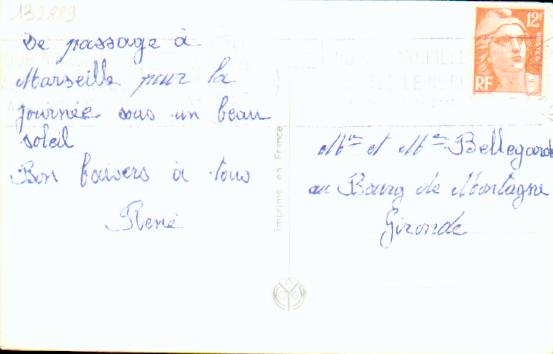 132889
De passage à
Marseille pour la
journée sous un beau
soleil
Bon baisers à tous
René
Imprimé en France
12F
POSTES
RF
Mr et Me Bellegarde
au Bourg de Montagne
Gironde